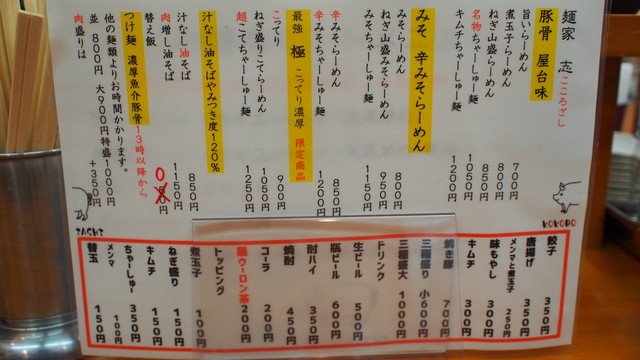 麺家 志 こころざし
豚骨 屋台味
旨いらーめん 700円
煮玉子らーめん 800円
ねぎ山盛らーめん 850円
名物ちゃーしゅー麺 1050円
キムチちゃーしゅー麺 1200円
みそ 辛みそらーめん
みそらーめん 800円
ねぎ山盛みそらーめん 950円
みそちゃーしゅー麺 1150円
辛みそらーめん 850円
辛みそちゃーしゅー麺 1200円
最強 極 こってり濃厚 限定商品
こってり 900円
ねぎ盛りこてらーめん 1050円
超こてちゃーしゅー麺 1250円
汁なし油そばやみつき度120%
汁なし油そば 850円
肉増し油そば 1150円
替え飯 0円
つけ麺 濃厚魚介豚骨13時以降から
他の麺類よりお時間かかります。
並 800円 大900円特盛1000円
肉盛りは +350円
ZASHI
KOKORO
餃子 350円
唐揚げ 350円
メンマと煮玉子 250円
味もやし 300円
キムチ 300円
焼き豚 700円
三種盛り 小600円
三種盛大 1000円
ドリンク
生ビール 500円
瓶ビール 600円
酎ハイ 350円
焼酎 450円
コーラ 200円
黒ウーロン茶 200円
トッピング
煮玉子 100円
ねぎ盛り 150円
キムチ 150円
ちゃーしゅー 350円
メンマ 100円
替玉 150円